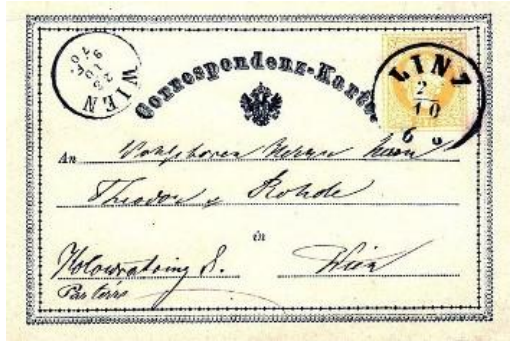 Correspondenz-Karte.
WIEN
LINZ
2
10
6
An Wohlgeboren Herrn Herrn
Theodor Rohde
in
Kolowratring 8. Wien
Parterre